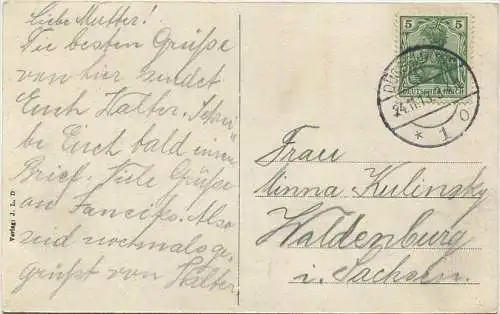 Liebe Mutter!
Die besten Grüße
von hier sendet
Euch Walter. Schrei"
be Euch bald einen
Brief. Viele Grüße
an Also
seid nochmals ge-
grüßt von Walter
Verlag J. L. D
5 5
DEUTSCHES REICH
24.11.13
* 1 o
Frau
Minna Kulinsky
Waldenburg
i. Sachsen.